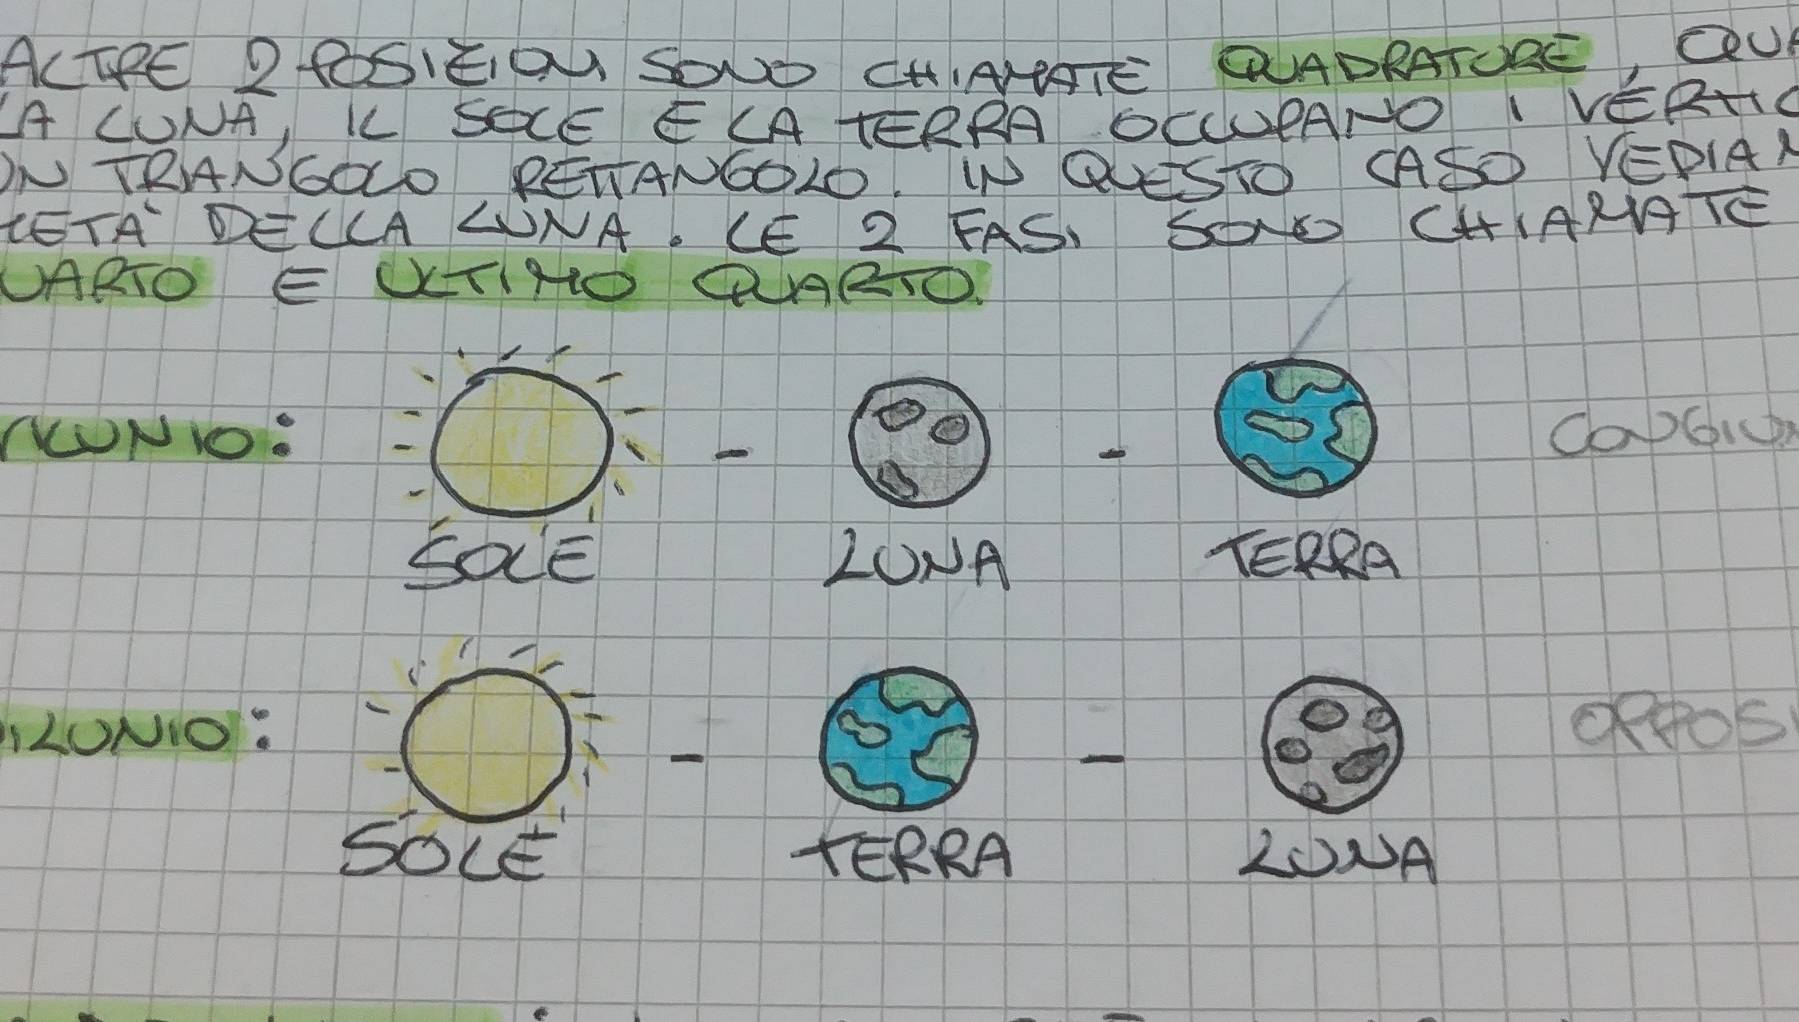 ALTRE 2 POSIZIONI SONO CHIAMATE QUADRATURE, QUA
LA LUNA, IL SOLE E LA TERRA OCCUPANO I VERTIC
UN TRIANGOLO RETTANGOLO. IN QUESTO CASO VEDIAM
METÀ DELLA LUNA. LE 2 FASI SONO CHIAMATE
UARTO E ULTIMO QUARTO.
VILUNIO: - - CONGIUN
SOLE LUNA TERRA
ILUNIO: - - OPPOSI
SOLE TERRA LUNA